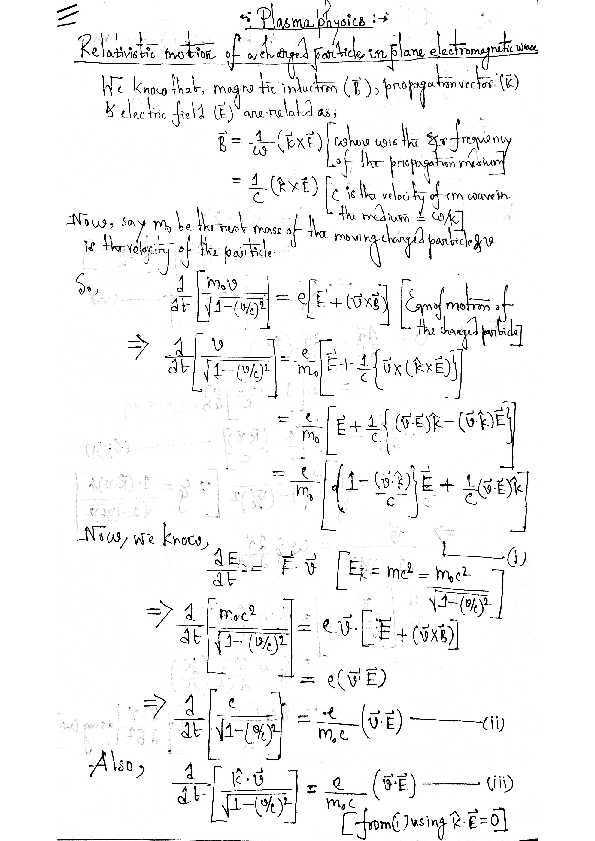 Plasma physics :→
Relativistic motion of a charged particle in plane electromagnetic wave
We know that, magnetic induction (B⃗), propagation vector (k⃗)
& electric field (E⃗) are related as,
B⃗ = 1/ω (k⃗×E⃗) [where ω is the frequency
of the propagation medium]
= 1/c (k̂×E⃗) [c is the velocity of em wave in
the medium = ω/k]
Now, say m₀ be the rest mass of the moving charged particle & v
is the velocity of the particle.
So, d/dt [m₀v/√(1-(v/c)²)] = e[E⃗ + (v⃗×B⃗)] [Eqn of motion of
the charged particle]
⇒ d/dt [v/√(1-(v/c)²)] = e/m₀ [E⃗ + 1/c {v⃗×(k̂×E⃗)}]
= e/m₀ [E⃗ + 1/c {(v⃗·E⃗)k̂ - (v⃗·k̂)E⃗}]
= e/m₀ [{1 - (v⃗·k̂)/c} E⃗ + 1/c (v⃗·E⃗)k̂]
Now, we know, (i)
dE/dt = F⃗·v⃗ [E_k = mc² = m₀c²/√(1-(v/c)²)]
⇒ d/dt [m₀c²/√(1-(v/c)²)] = e v⃗·[E⃗ + (v⃗×B⃗)]
= e(v⃗·E⃗)
⇒ d/dt [c/√(1-(v/c)²)] = e/m₀c (v⃗·E⃗) (ii)
Also, d/dt [k̂·v⃗/√(1-(v/c)²)] = e/m₀c (v⃗·E⃗) (iii)
[from (i) using k̂·E⃗ = 0]